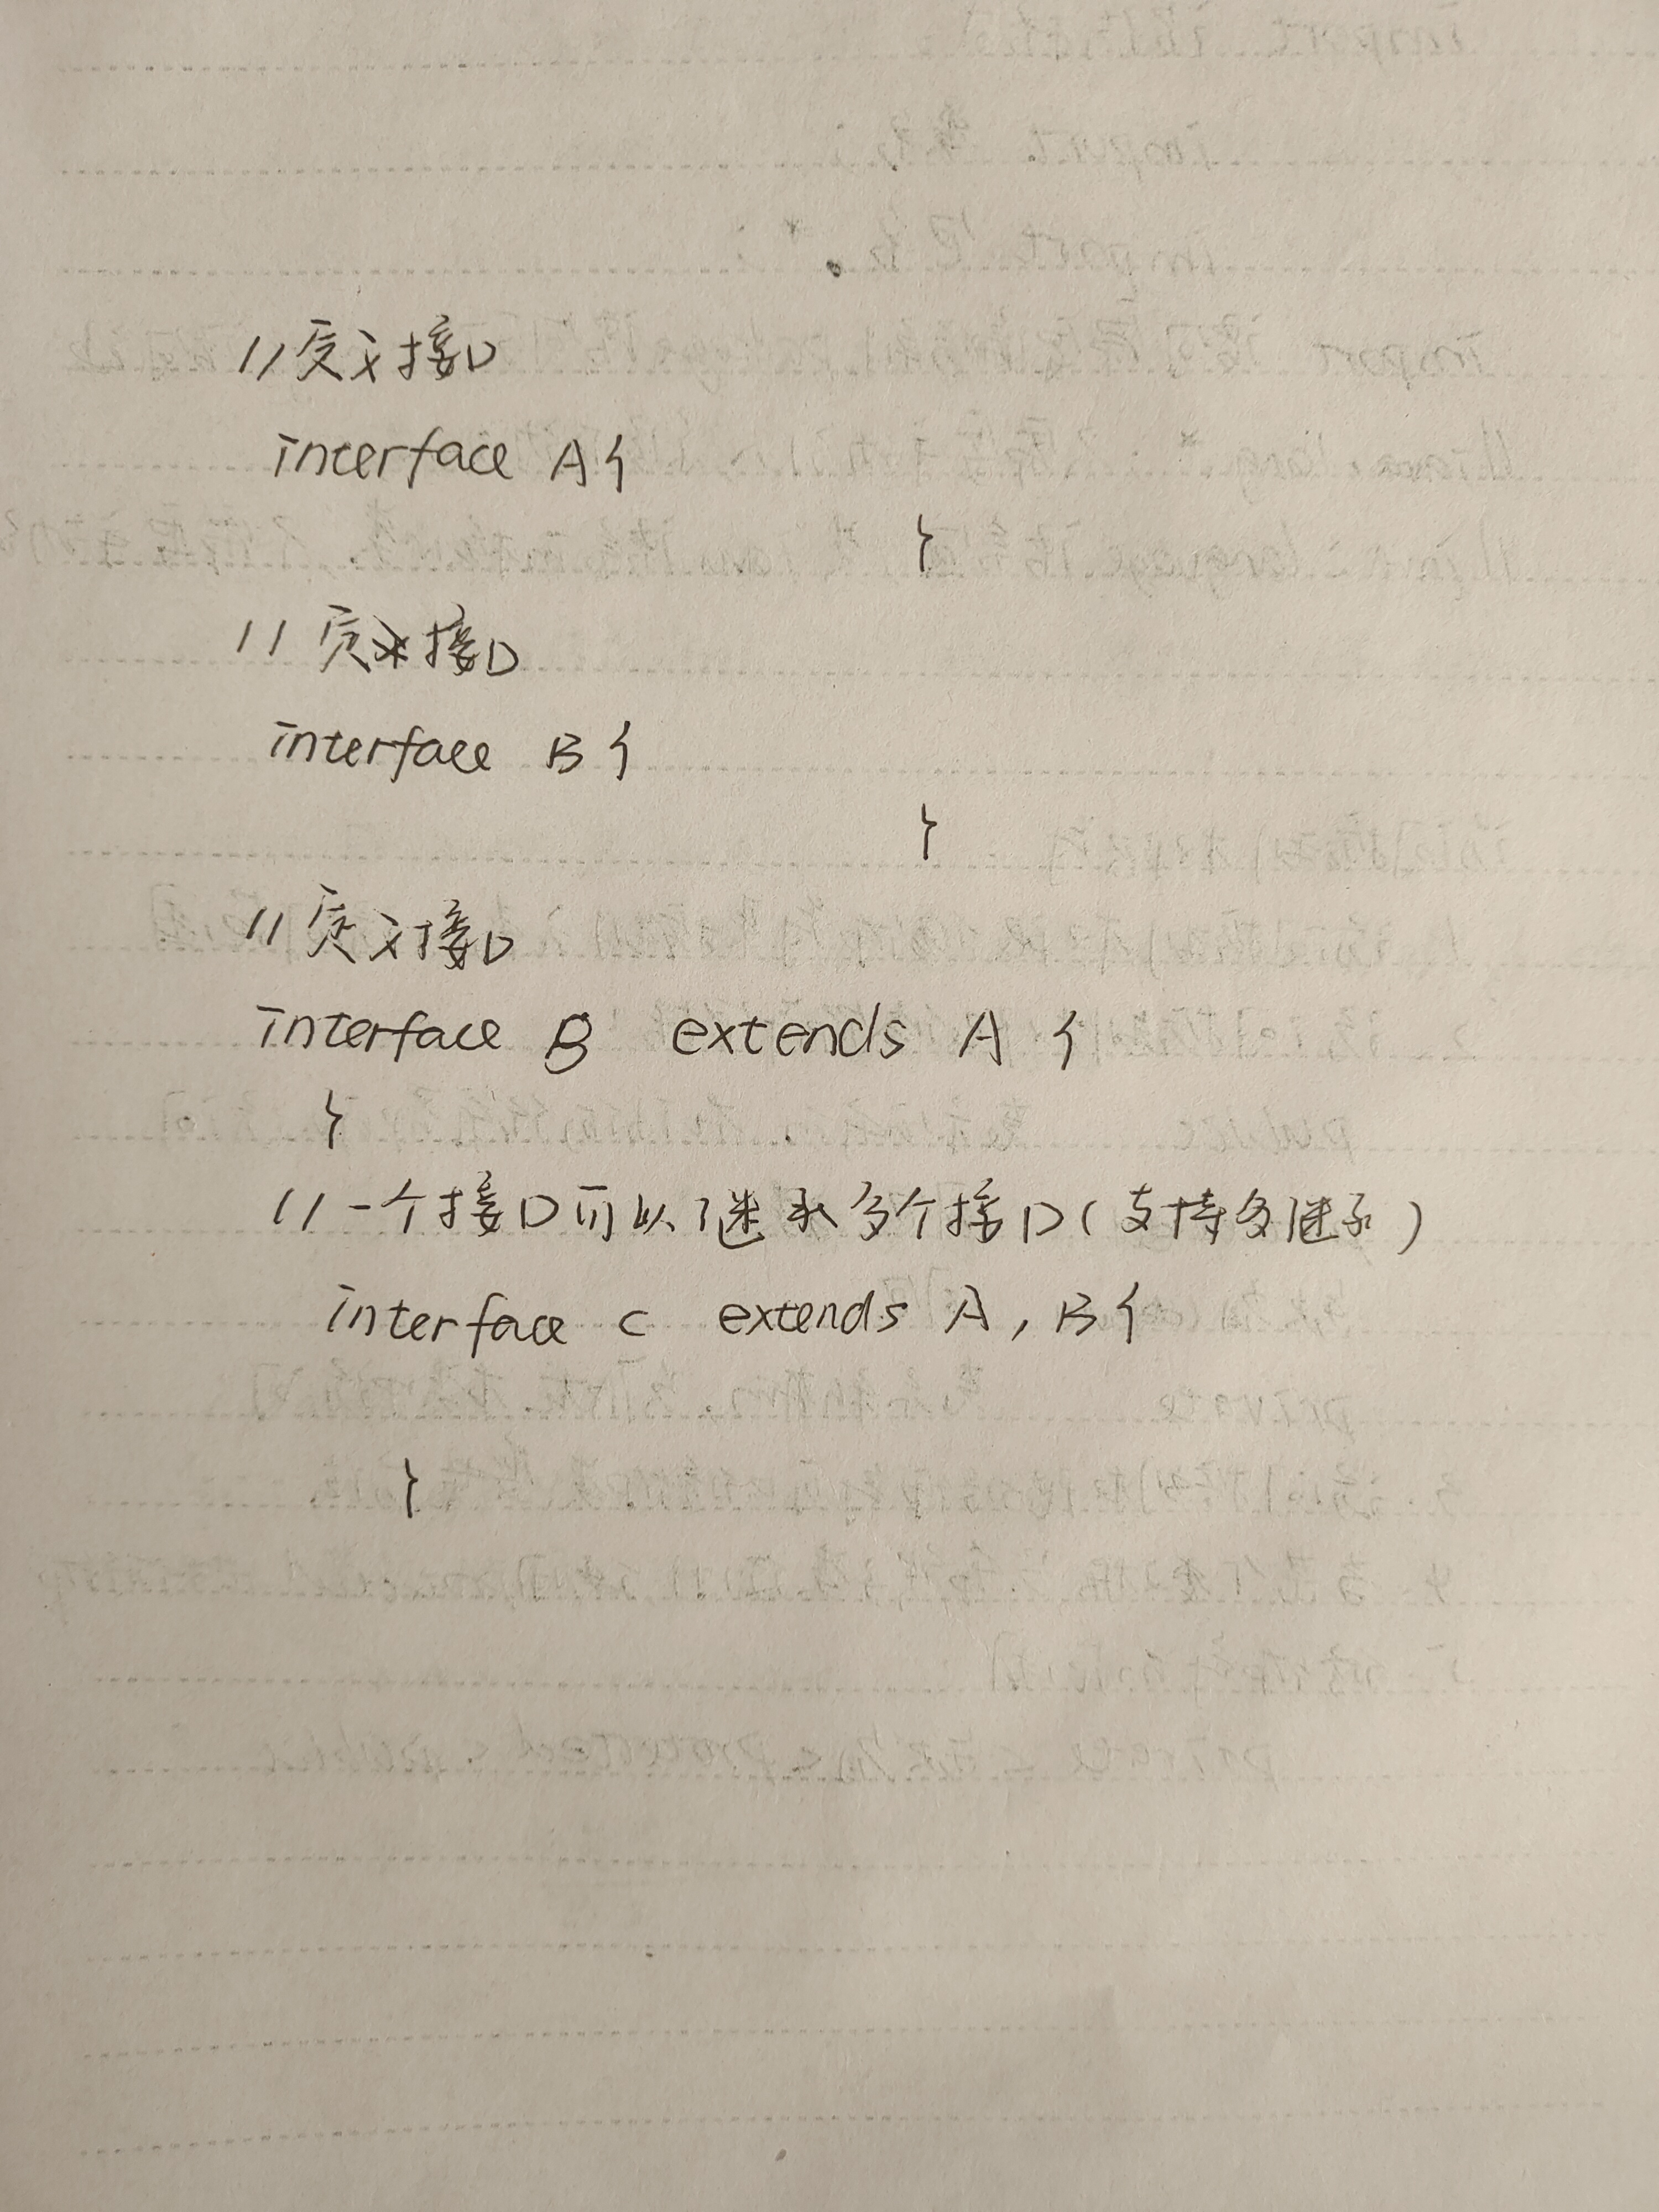 //定义接口
interface A{
}
//定义接口
interface B{
}
//定义接口
interface B extends A {
}
//一个接口可以继承多个接口(支持多继承)
interface C extends A, B{
}